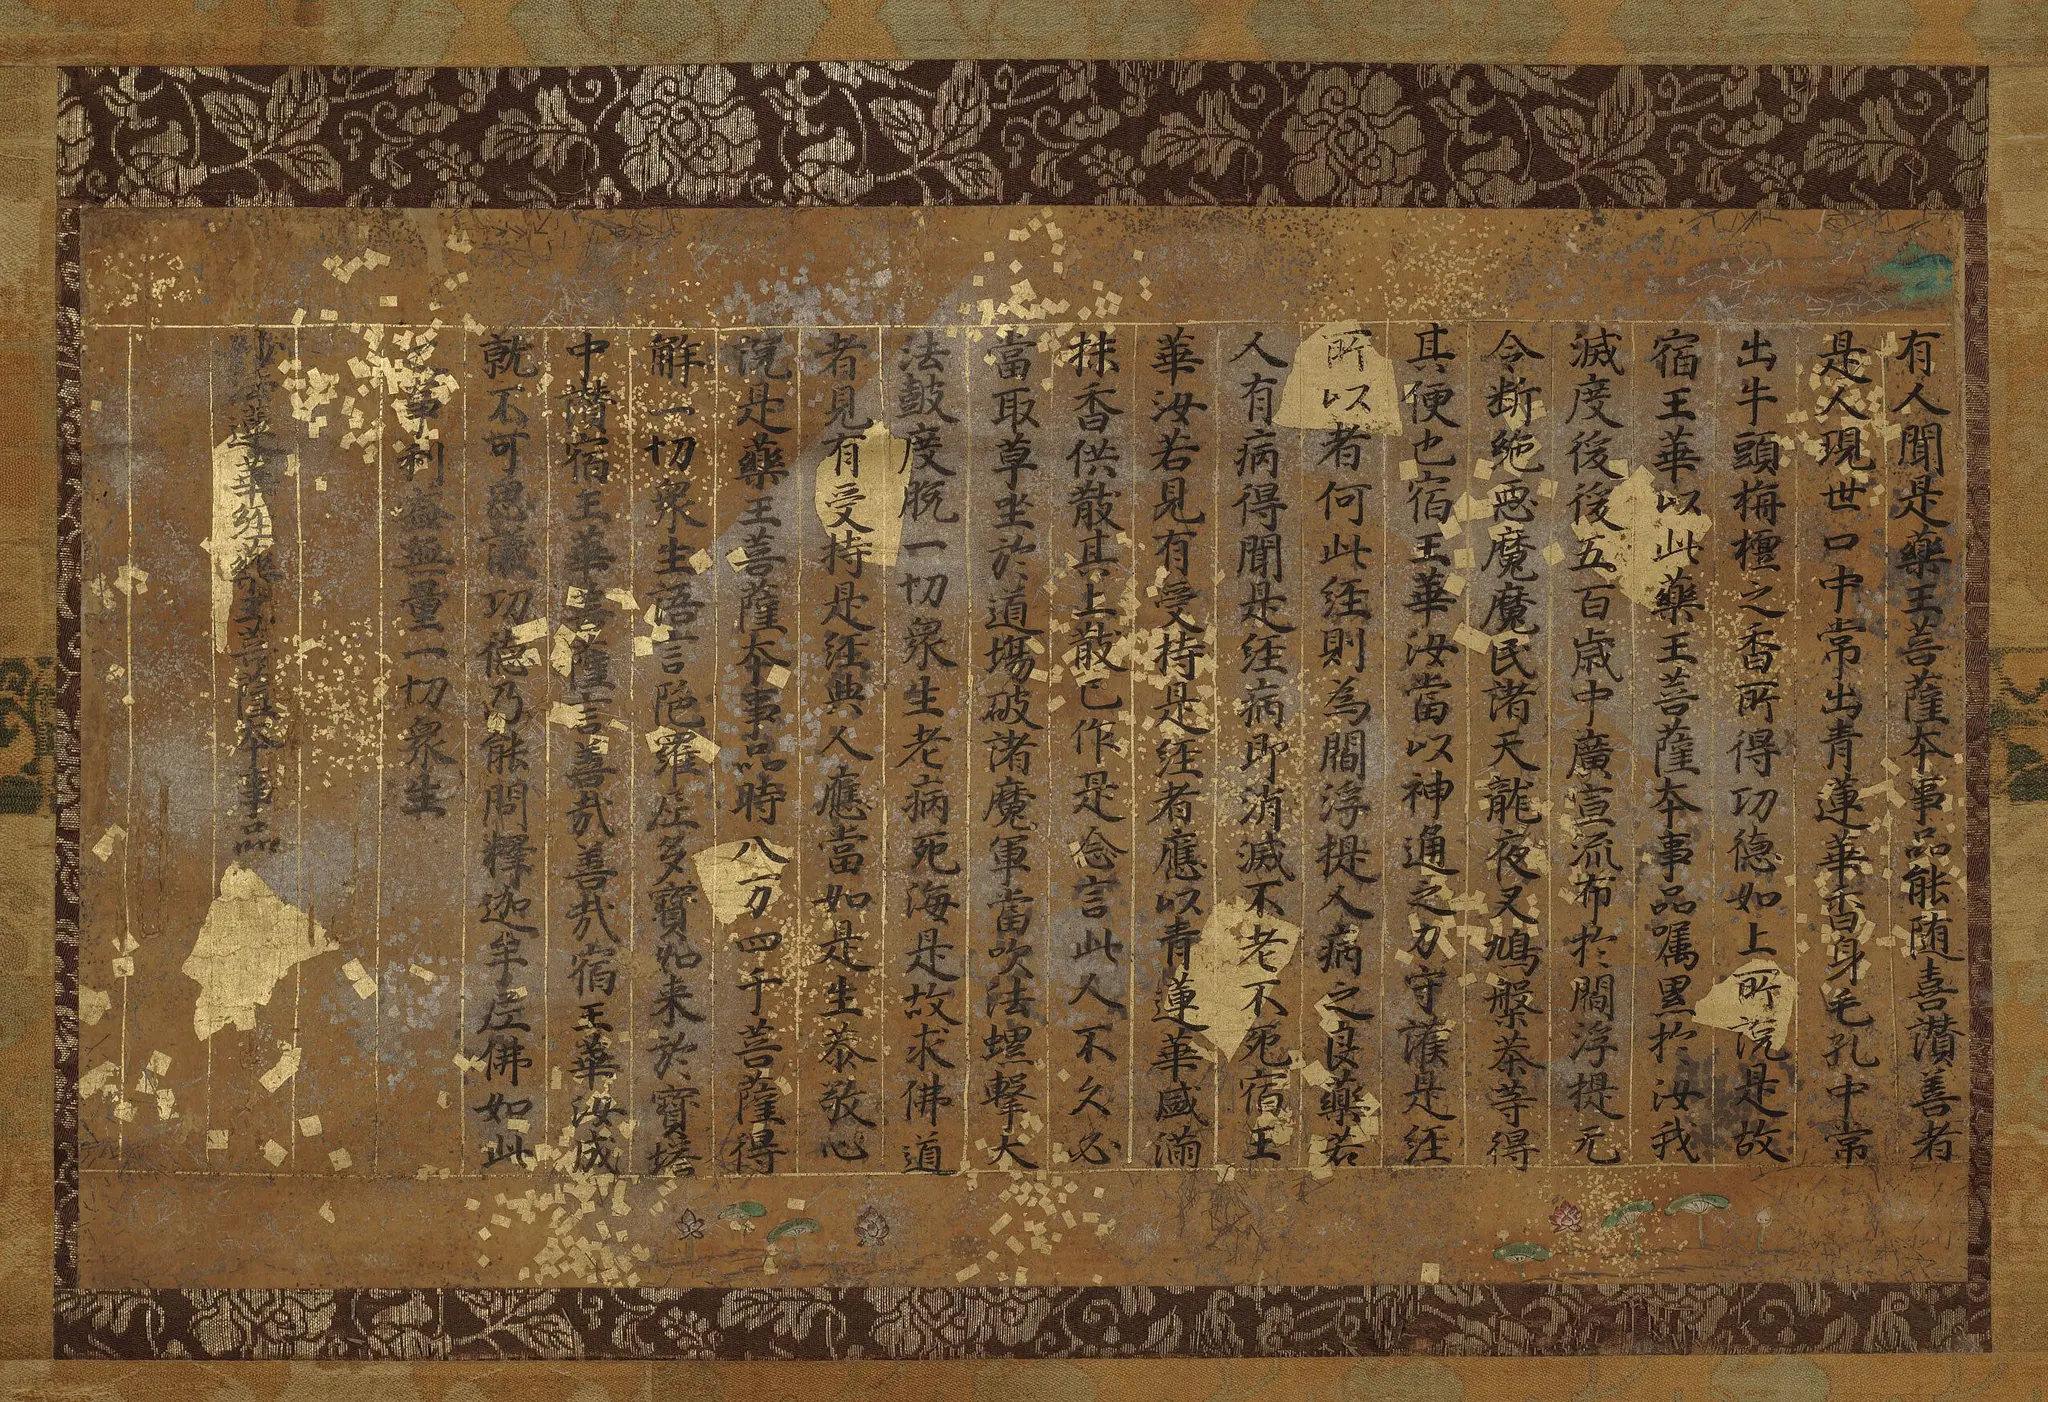 有人聞是藥王菩薩本事品能随喜讃善者
是人現世口中常出青蓮華香身毛孔中常
出牛頭栴檀之香所得功德如上所說是故
宿王華以此藥王菩薩本事品嘱累於汝我
滅度後後五百歳中廣宣流布於閻浮提无
令断絶惡魔魔民諸天龍夜叉鳩槃荼等得
其便也宿王華汝當以神通之力守護是経
所以者何此経則為閻浮提人病之良藥若
人有病得聞是経病即消滅不老不死宿王
華汝若見有受持是経者應以青蓮華盛滿
抹香供散其上散已作是念言此人不久必
當取草坐於道場破諸魔軍當吹法螺撃大
法鼓度脱一切衆生老病死海是故求佛道
者見有受持是経典人應當如是生恭敬心
説是藥王菩薩本事品時八万四千菩薩得
解一切衆生語言陀羅尼多寶如来於寶塔
中讃宿王華菩薩言善哉善哉宿王華汝成
就不可思議功德乃能問釋迦牟尼佛如此
之事利益無量一切衆生
蓮華経藥王菩薩本事品